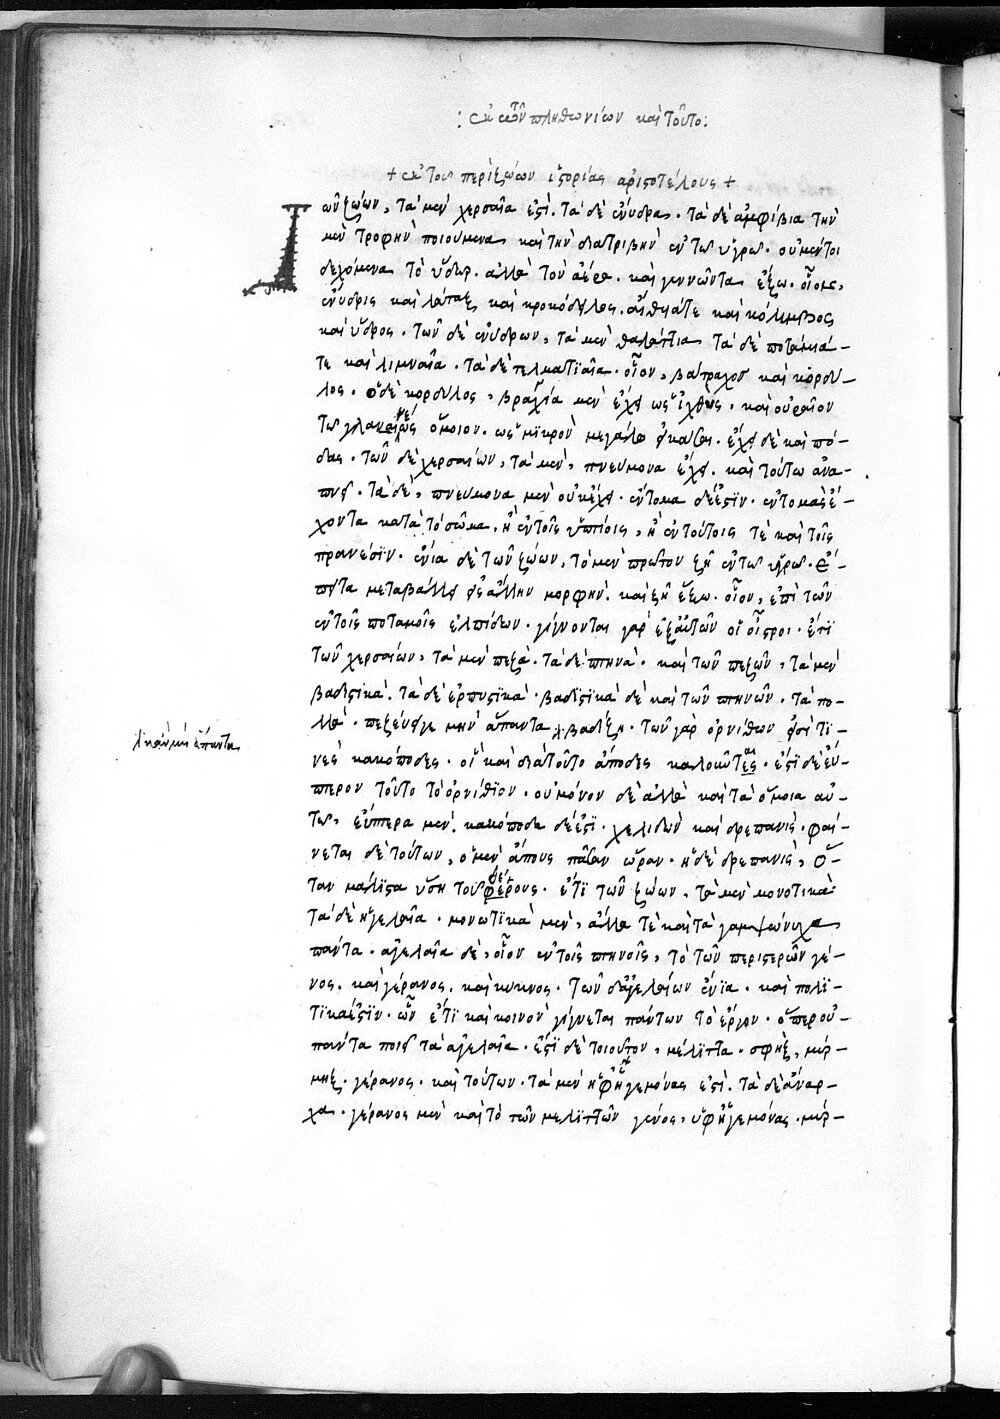 : ἐκ τῶν πληθωνίων καὶ τοῦτο:
+ ἐκ τοῦ περὶ ζώων ἱστορίας ἀριστοτέλους +
Τῶν ζώων, τὰ μὲν χερσαῖα ἐστὶ. τὰ δὲ ἔνυδρα. τὰ δὲ ἀμφίβια τὴν
μὲν τροφὴν ποιούμενα καὶ τὴν διατριβὴν ἐν τῶ ὑγρῶ. οὐ μέντοι
δεχόμενα τὸ ὕδωρ. ἀλλὰ τὸν ἀέρα. καὶ γεννῶντα ἔξω. οἷον,
ἔνυδρις καὶ λάταξ καὶ κροκόδειλος. αἴθυιά τε καὶ κόλιμβος
καὶ ὕδρος. τῶν δὲ ἐνύδρων, τὰ μὲν θαλάττια τὰ δὲ ποτάμιά-
τε καὶ λιμναῖα. τὰ δὲ τελματϊαῖα. οἷον, βάτραχος καὶ κορδύ-
λος. ὁ δὲ κορδύλος, βράγχϊα μὲν ἔχει ὡς ἰχθῦς. καὶ οὐραῖον
τῶ γλάνει ὅμοιον. ὡς μϊκρὸν μεγάλω εἰκάσαι. ἔχει δὲ καὶ πό-
δας. τῶν δὲ χερσαίων, τὰ μὲν, πνεύμονα ἔχει. καὶ τούτω ἀνα-
πνεῖ. τὰ δὲ, πνεύμονα μὲν οὐκ ἔχει. ἔντομα δέ ἐστϊν. ἐντομὰς ἔ-
χοντα κατὰ τὸ σῶμα. ἢ ἐν τοῖς ὑπτίοις, ἢ ἐν τούτοις τὲ καὶ τοῖς
πρανέσϊν. ἔνια δὲ τῶν ζώων, τὸ μὲν πρῶτον ζῆ ἐν τῶ ὑγρῶ. ἔ-
πειτα μεταβάλλει εἰς ἄλλην μορφὴν. καὶ ζῆ ἔξω. οἷον, ἐπὶ τῶν
ἐν τοῖς ποταμοῖς ἐλπίδων. γίγνονται γὰρ ἐξ αὐτῶν οἱ οἶστροι. ἔτϊ
τῶν χερσαίων, τὰ μὲν πεζὰ. τὰ δὲ πτηνὰ. καὶ τῶν πεζῶν, τὰ μὲν
βαδιστικὰ. τὰ δὲ ἑρπυστϊκὰ. βαδϊστϊκὰ δὲ καὶ τῶν πτηνῶν. τὰ πο-
λλὰ. πεζεύει γε μὴν ἅπαντα βαδίζει. τῶν γὰρ ὀρνίθων εἰσί τϊ-
νὲς κακόποδες. οἳ καὶ διὰ τοῦτο ἄποδες καλοῦνται. ἔστϊ δὲ εὔ-
πτερον τοῦτο τὸ ὀρνίθϊον. οὐ μόνον δὲ ἀλλὰ καὶ τὰ ὅμοια αὐ-
τῶ, εὔπτερα μὲν. κακόποδα δέ ἐστϊ. χελιδὼν καὶ δρεπανὶς. φαί-
νεται δὲ τούτων, ὁ μὲν ἄπους πᾶσαν ὥραν. ἡ δὲ δρεπανὶς, ὅ-
ταν μάλϊστα ὕση τοῦ θέρους. ἔτϊ τῶν ζώων, τὰ μὲν μονοτικὰ.
τὰ δὲ ἀγελαῖα. μονωτϊκὰ μὲν, ἄλλα τὲ καὶ τὰ γαμψώνυχα
πάντα. ἀγελαῖα δὲ, οἷον ἐν τοῖς πτηνοῖς, τὸ τῶν περιστερῶν γέ-
νος. καὶ γέρανος. καὶ κύκνος. τῶν δ' ἀγελαίων ἔνϊα. καὶ πολϊ-
τϊκά ἐστϊν. ὧν ἔτϊ καὶ κοινὸν γίγνεται πάντων τὸ ἔργον. ὅπερ οὐ-
πάντα ποιεῖ τὰ ἀγελαῖα. ἔστϊ δὲ τοιοῦτον, μέλϊττα. σφὴξ, μύρ-
μηξ. γέρανος. καὶ τούτων. τὰ μὲν ὑφ' ἡγεμόνας ἐστὶ. τὰ δὲ ἄναρ-
χα. γέρανος μὲν καὶ τὸ τῶν μελϊττῶν γένος, ὑφ' ἡγεμόνας. μύρ-